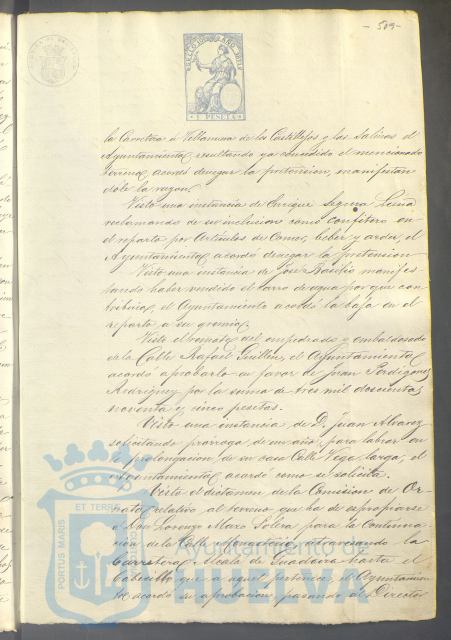 - 509 -
SELLO 10º AÑO
1 PESETA
la Carretera á Villanueva de los Castillejos y las Salinas el
Ayuntamiento, resultando ya concedido el mencionado
terreno, acordó denegar la pretension, manifestan
dole la razon.
Visto una instancia de Enrique Segura Luisa
reclamando de su inclusion como confitero en
el reparto por Artículos de Comer, beber y arder, el
Ayuntamiento acordó denegar la pretension
Visto una instancia de José Basilio manifes
tando haber vendido el carro de agua por que con
tribuia, el Ayuntamiento acordó la baja en el
reparto a su gremio
Visto el remate del empedrado y embaldosado
de la Calle Rafael Guillen, el Ayuntamiento
acordó aprobarlo en favor de Juan Perdigones
Rodriguez por la suma de tres mil doscientas
noventa y cinco pesetas.
Visto una instancia de D. Juan Alvarez
solicitando próroga de un año para labrar en
la prolongacion de su casa Calle Vega larga, el
Ayuntamiento acordó como se solicita.
Visto el dictamen de la Comision de Or-
nato relativo al terreno que ha de apropiarse
á Don Lorenzo Mazo Solera para la continua-
cion de la Calle Monasterio atravesando la
Carretera Alcalá de Guadaira hasta el
Cabecillo que a aquel pertenece, el Ayuntamien
to acordó su aprobacion, pasando al Director
PORTUS MARIS
ET TERRAE
CUSTODIO
Ayuntamiento de
HUELVA